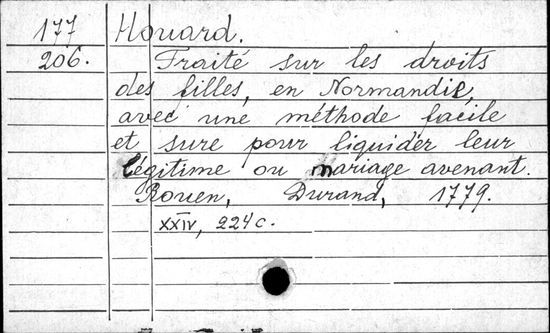 177 Houard.
206. Traité sur les droits
des filles, en Normandie,
avec une méthode facile
et sure pour liquider leur
légitime ou mariage avenant.
Rouen, Durand, 1779.
XXIV, 224 c.